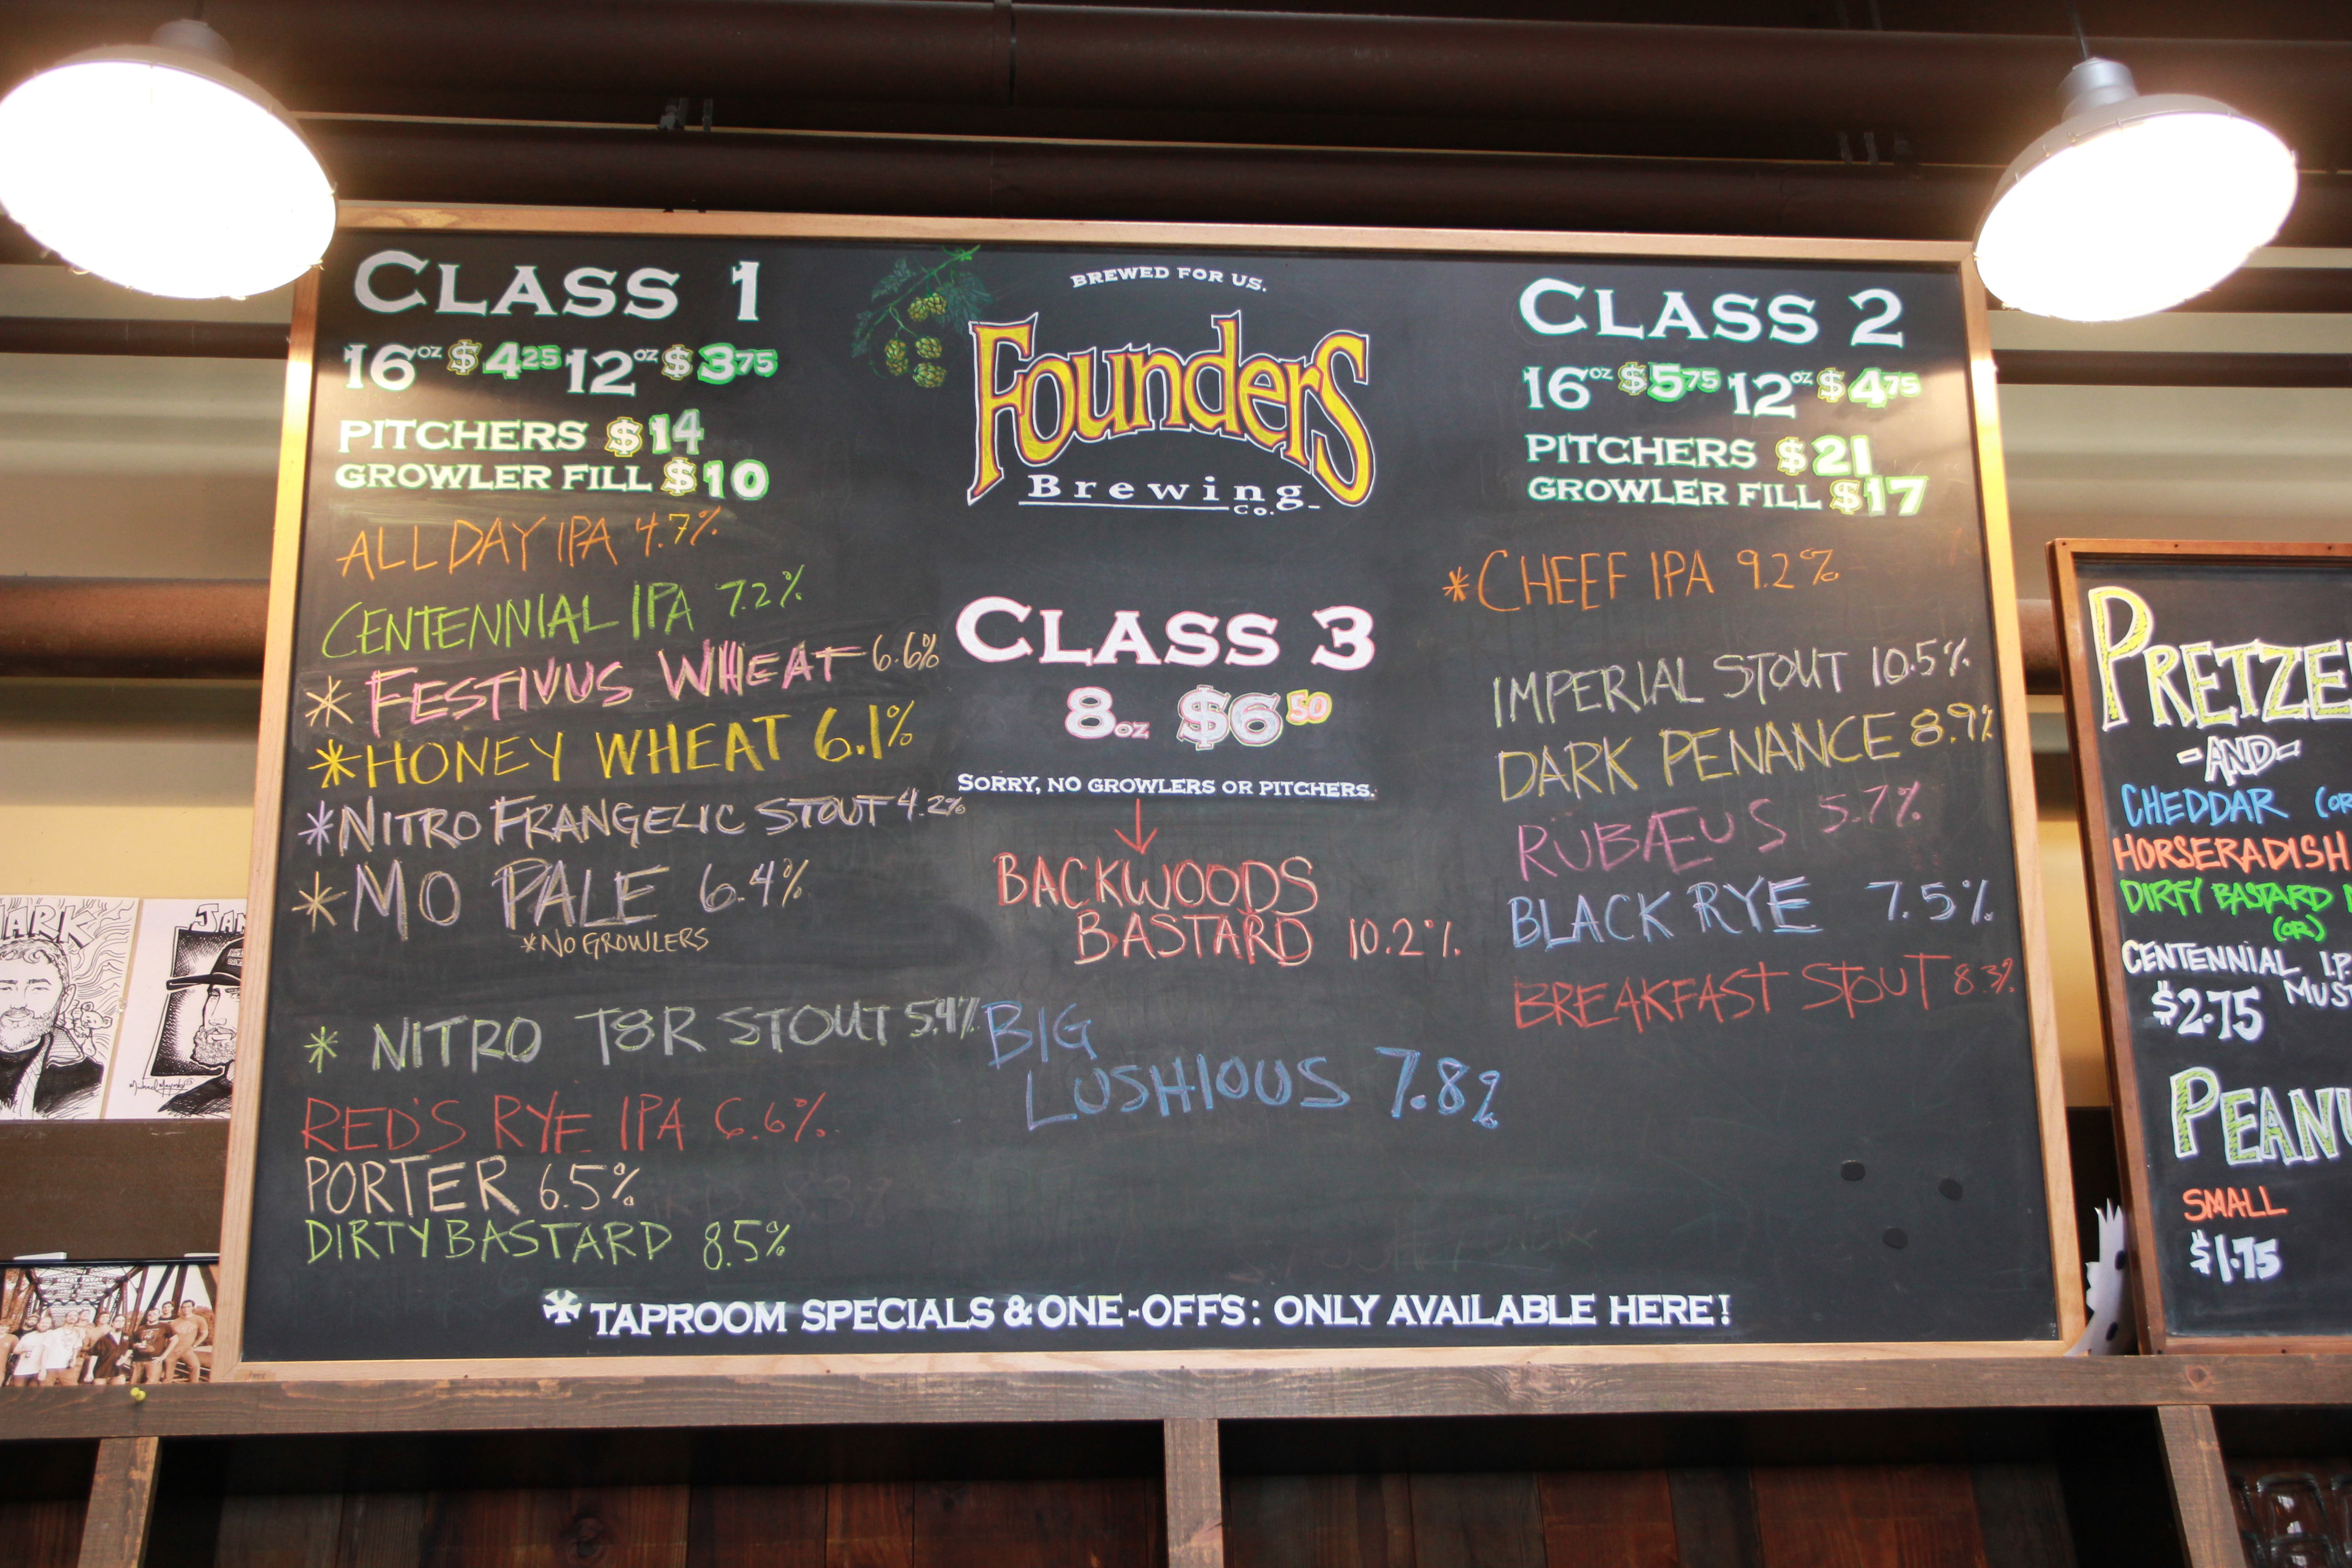 CLASS 1
16oz $4.25 12oz $3.75
PITCHERS $14
GROWLER FILL $10
ALL DAY IPA 4.7%
CENTENNIAL IPA 7.2%
*FESTIVUS WHEAT 6.6%
*HONEY WHEAT 6.1%
*NITRO FRANGELIC STOUT 4.2%
*MO PALE 6.4%
*NO GROWLERS
* NITRO T8R STOUT 5.4%
RED'S RYE IPA 6.6%
PORTER 6.5%
DIRTY BASTARD 8.5%
BREWED FOR US.
FOUNDERS
Brewing
Co.
CLASS 3
8oz $6 50
SORRY, NO GROWLERS OR PITCHERS.
BACKWOODS
BASTARD 10.2%
BIG
LUSHIOUS 7.8%
CLASS 2
16oz $5 75 12oz $4 75
PITCHERS $21
GROWLER FILL $17
*CHEEF IPA 9.2%
IMPERIAL STOUT 10.5%
DARK PENANCE 8.9%
RÜBÆUS 5.7%
BLACK RYE 7.5%
BREAKFAST STOUT 8.3%
* TAPROOM SPECIALS & ONE-OFFS: ONLY AVAILABLE HERE!
PRETZE
-AND-
CHEDDAR (OR
HORSERADISH
DIRTY BASTARD
(OR)
CENTENNIAL I.P
$2.75 MUST
PEANU
SMALL
$1.75
ARK
JAM